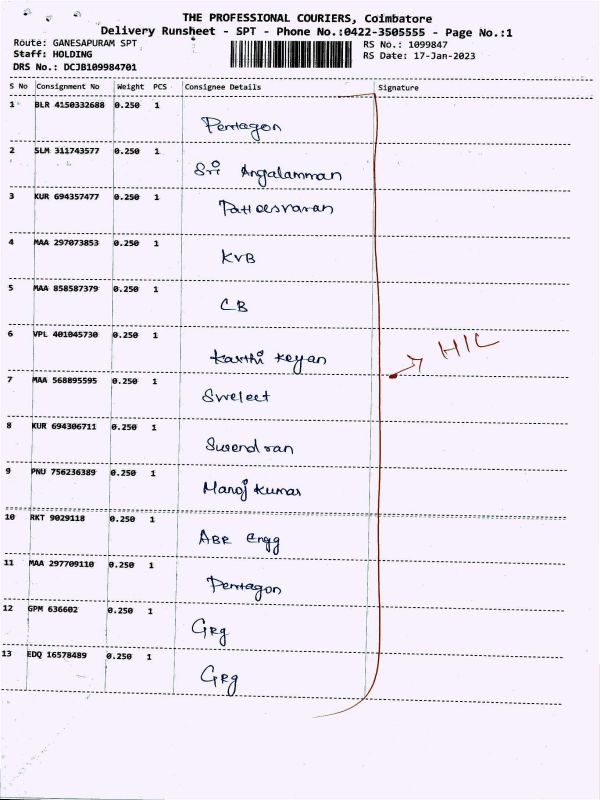 THE PROFESSIONAL COURIERS, Coimbatore
Delivery Runsheet - SPT - Phone No.:0422-3505555 - Page No.:1
Route: GANESAPURAM SPT
Staff: HOLDING
DRS No.: DCJB109984701
RS No.: 1099847
RS Date: 17-Jan-2023
S No Consignment No Weight PCS Consignee Details Signature
1 BLR 4150332688 0.250 1
Pentagon
2 SLM 311743577 0.250 1
Sri Angalamman
3 KUR 694357477 0.250 1
Patteesvaran
4 MAA 297073853 0.250 1
KVB
5 MAA 858587379 0.250 1
CB
6 VPL 401045730 0.250 1
Karthi Keyan
H/L
7 MAA 568895595 0.250 1
Swelect
8 KUR 694306711 0.250 1
Surendran
9 PNU 756236389 0.250 1
Manoj Kumar
10 RKT 9029118 0.250 1
ABR Engg
11 MAA 297709110 0.250 1
Pentagon
12 GPM 636602 0.250 1
GRg
13 EDQ 16578489 0.250 1
GRg